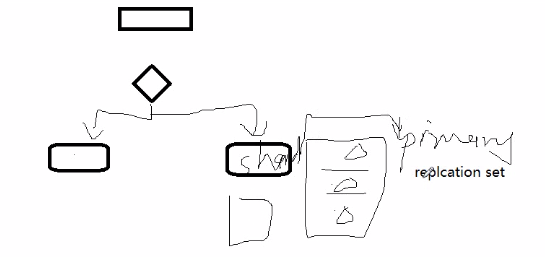 shard primary
replcation set